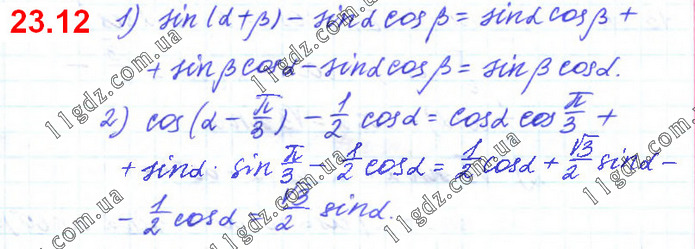 23.12 1) sin(α+β) – sinα cosβ = sinα cosβ +
+ sinβ cosα – sinα cosβ = sinβ cosα.
2) cos(α – π/3) – 1/2 cosα = cosα cos π/3 +
+ sinα · sin π/3 – 1/2 cosα = 1/2 cosα + √3/2 sinα –
– 1/2 cosα = √3/2 sinα.
11gdz.com.ua
11gdz.com.ua
11gdz.com.ua
11gdz.com.ua
11gdz.com.ua